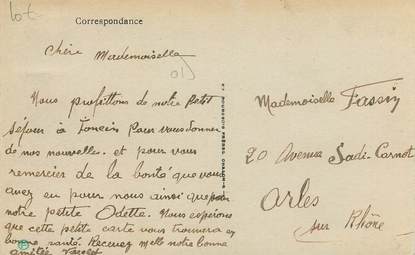 lot
Correspondance
Chère Mademoiselle
Nous profittons de notre Petit
séjour à Joncin Pour vous donner
de nos nouvelles. et pour vous
remercier de la bonté que vous
avez eu pour nous ainsi que pour
notre petite Odette. Nous espérons
que cette petite carte vous trouvera en
bonne santé. Recevez Melle notre bonne
amitée
Mademoiselle Fassin
20 Avenue Sadi-Carnot
Arles
sur Rhône